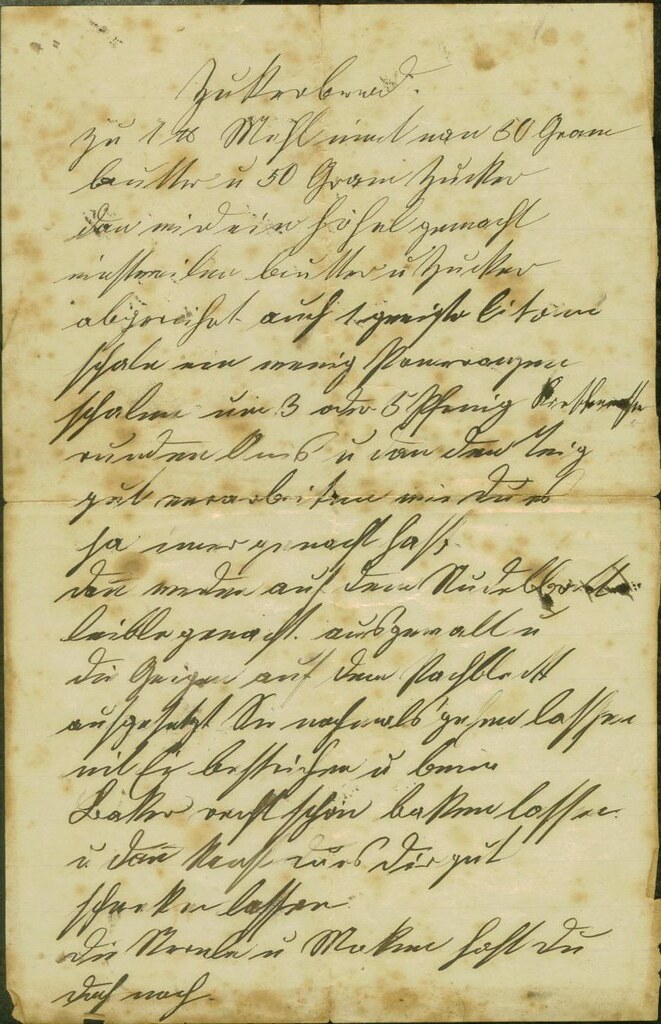 Zukerbrod.
zu 1 ℔ Mehl nimt man 50 Gram
butter u 50 Gram Zucker
dan wird ein höfel gemacht
einstweilen butter u Zucker
abgerührt auch 1 geriebe Citron
schale ein wenig Pomeranzen
schalen um 3 oder 5 Pfenig
runden Anis u dan den Teig
gut verarbeiten wie du es
ja imer gemacht hast.
dan werden auf dem Nudelbrett
leible gemacht. ausgewalt u
die Geigen auf dem Bachblett
aufgesetzt Sie nochmals gehen lassen
mit Ei bestrichen u beim
Baker recht schön baken lassen.
u dan kanst du es dir gut
schmeken lassen.
die Strenle u Moken hast du
doch noch.